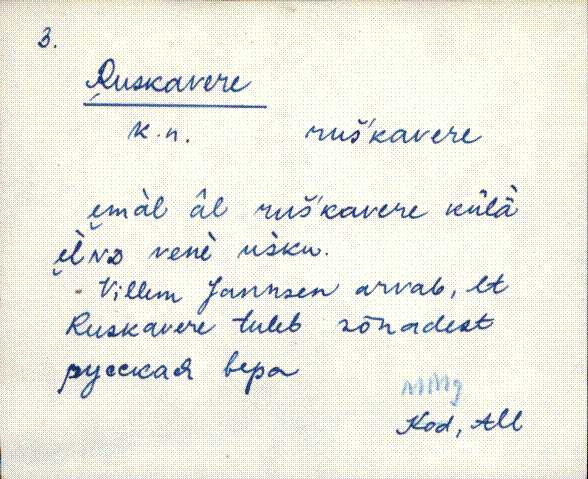 3.
Ruskavere
k.n. ruš'kavere
emàl âl ruš'kavere külä
venè ùsku.
Villem Jannsen arvab, et
Ruskavere tuleb sõnadest
русская вера
MMg
Kod, All